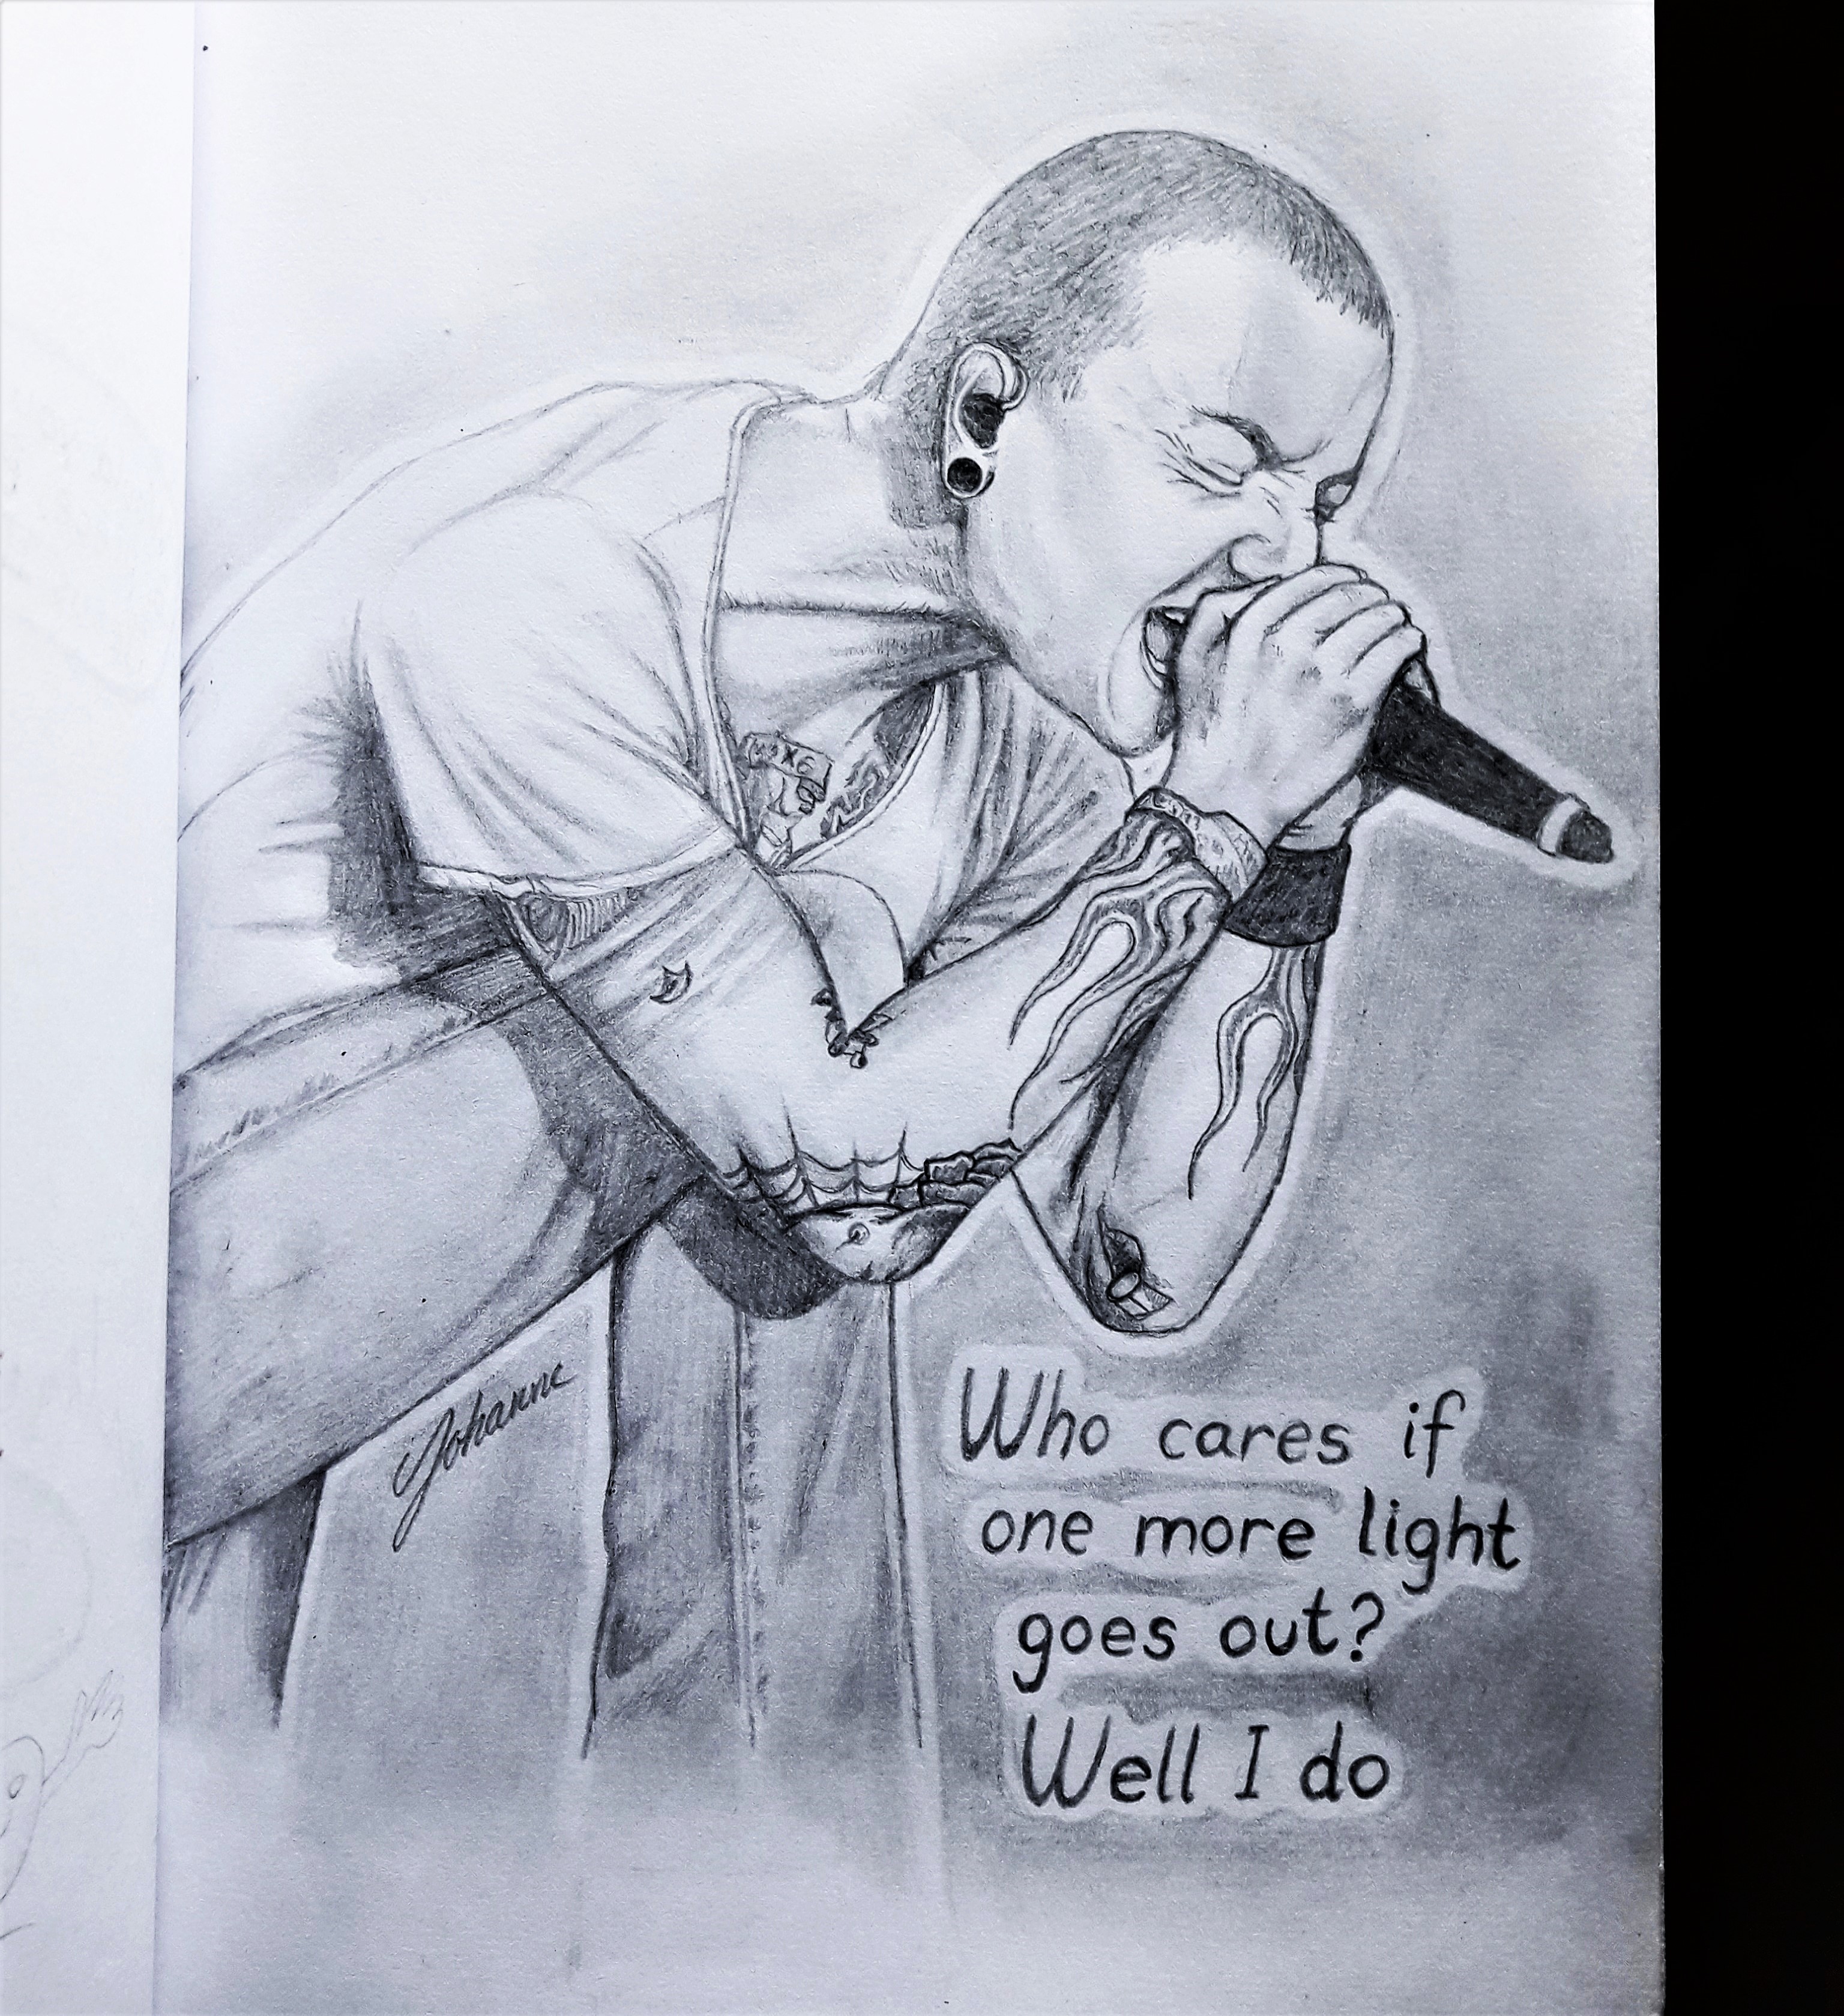 Johanne
Who cares if
one more light
goes out?
Well I do